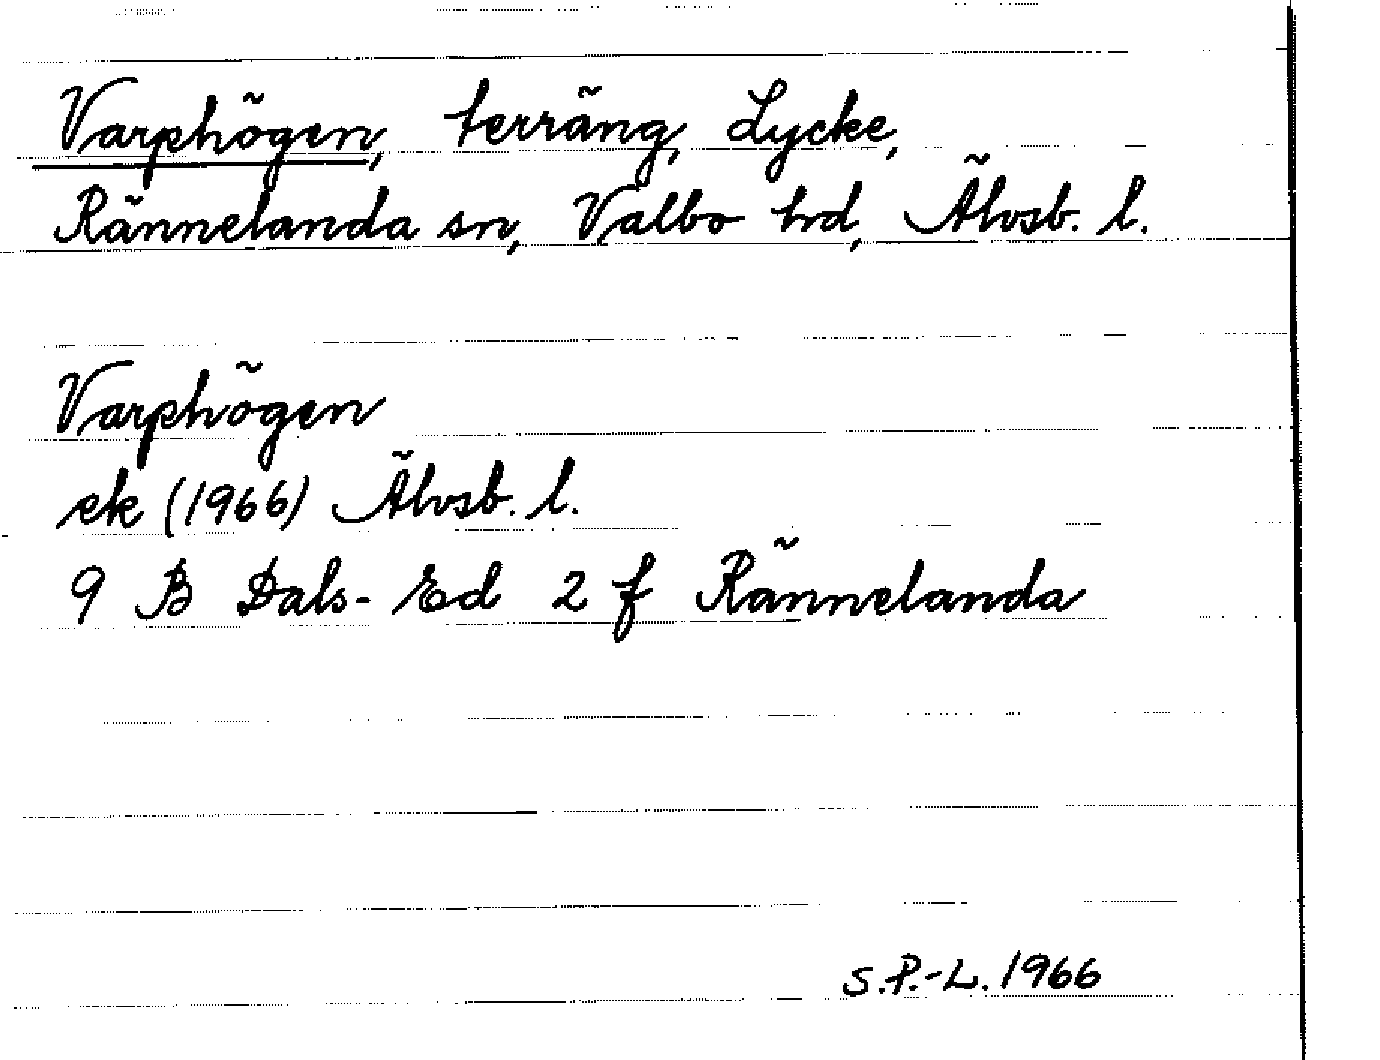 Varphögen, terräng, Lycke,
Rännelanda sn, Valbo hd, Älvsb. l.
Varphögen
ek (1966) Älvsb. l.
9 B Dals-Ed 2 f Rännelanda
S.P.-L. 1966